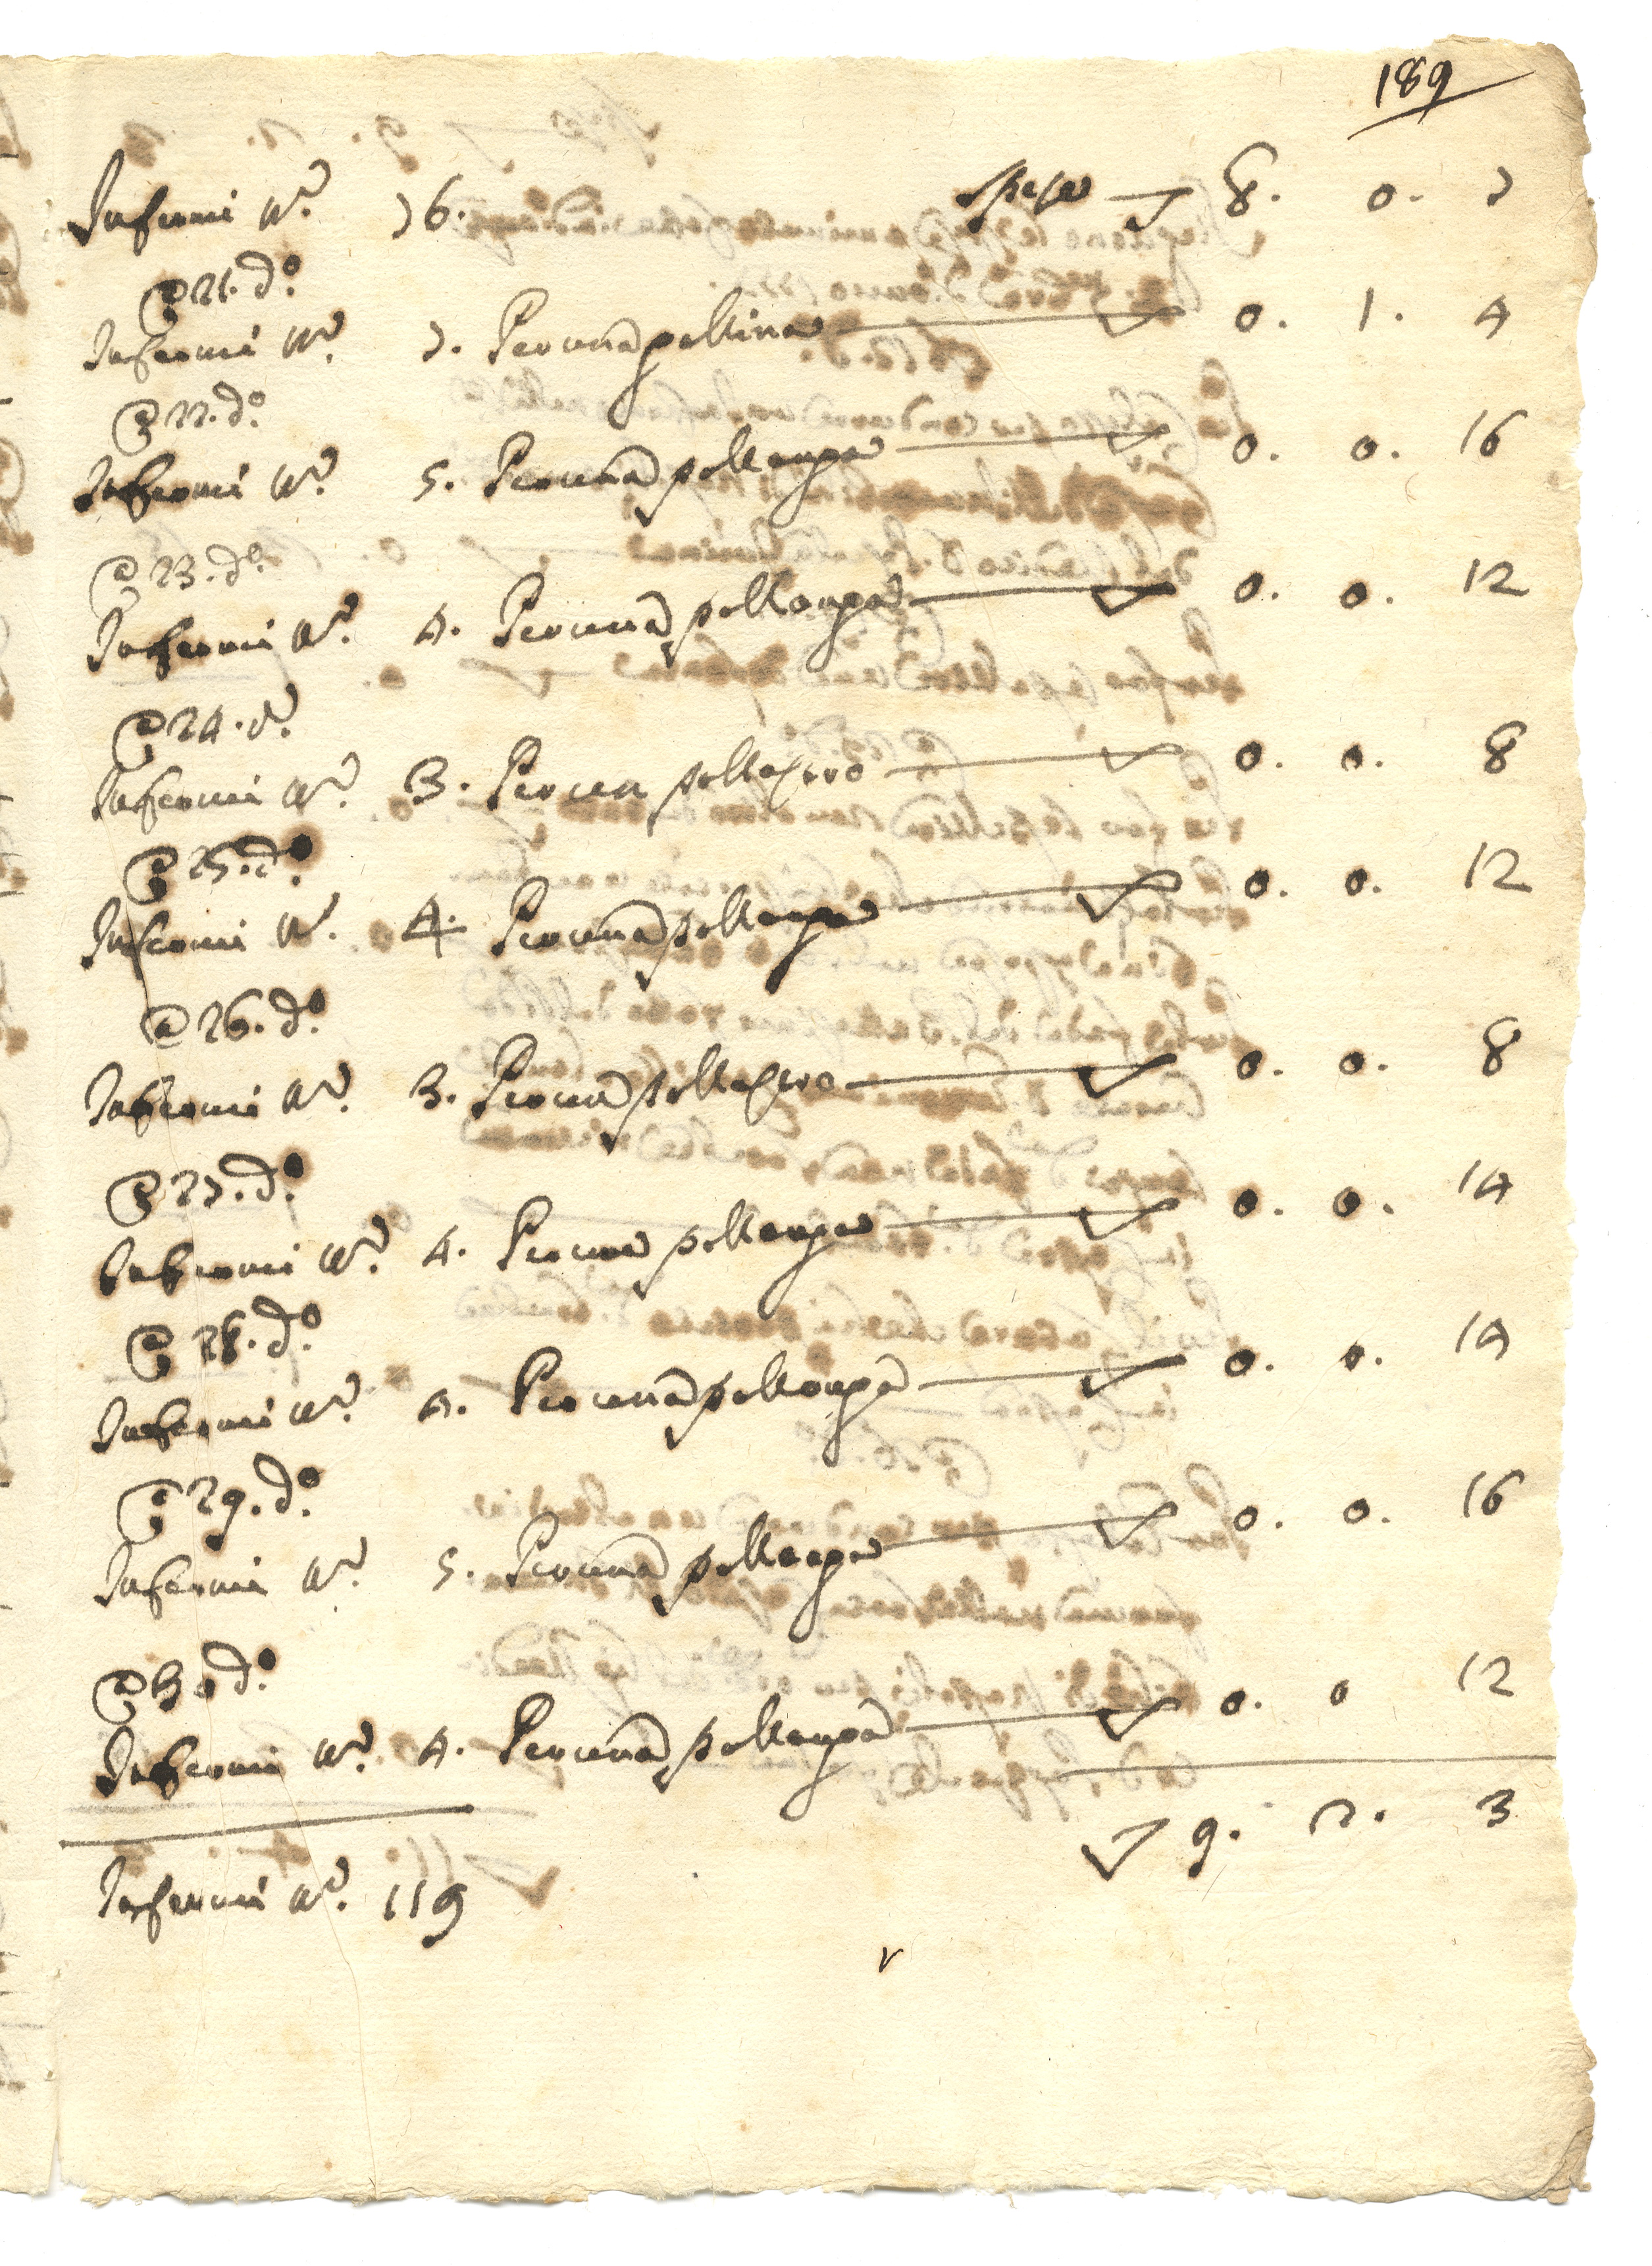 189
Infermi n.º 76. Spese 8. 0. 7
@ 21. d.º
Infermi n.º 7. Per una gallina 0. 1. 4
@ 22. d.º
Infermi n.º 5. Per una pollanga 0. 0. 16
@ 23. d.º
Infermi n.º 4. Per una pollanga 0. 0. 12
@ 24. d.º
Infermi n.º 3. Per un pollastro 0. 0. 8
@ 25. d.º
Infermi n.º 4. Per una pollanga 0. 0. 12
@ 26. d.º
Infermi n.º 3. Per un pollastro 0. 0. 8
@ 27. d.º
Infermi n.º 4. Per una pollanga 0. 0. 14
@ 28. d.º
Infermi n.º 4. Per una pollanga 0. 0. 14
@ 29. d.º
Infermi n.º 5. Per una pollanga 0. 0. 16
@ 30 d.º
Infermi n.º 4. Per una pollanga 0. 0 12
9. 2. 3
Infermi n.º 119